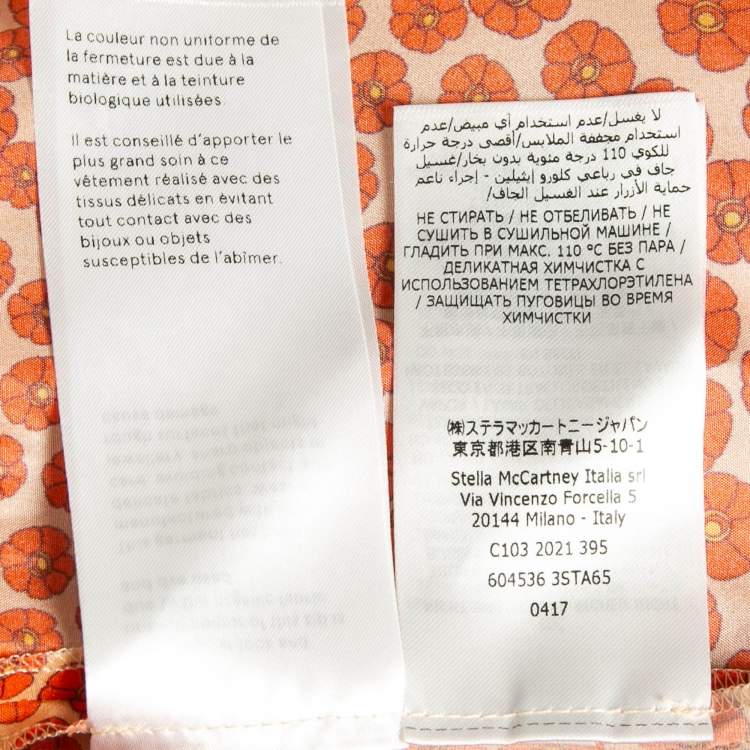 La couleur non uniforme de
la fermeture est due à la
matière et à la teinture
biologique utilisées.
Il est conseillé d'apporter le
plus grand soin à ce
vêtement réalisé avec des
tissus délicats en évitant
tout contact avec des
bijoux ou objets
susceptibles de l'abîmer.
لا يغسل/عدم استخدام أي مبيض/عدم
استخدام مجففة الملابس/أقصى درجة حرارة
للكوي 110 درجة مئوية بدون بخار/غسيل
جاف في رباعي كلورو إيثيلين - إجراء ناعم
حماية الأزرار عند الغسيل الجاف/
НЕ СТИРАТЬ / НЕ ОТБЕЛИВАТЬ / НЕ
СУШИТЬ В СУШИЛЬНОЙ МАШИНЕ /
ГЛАДИТЬ ПРИ МАКС. 110 °C БЕЗ ПАРА /
ДЕЛИКАТНАЯ ХИМЧИСТКА С
ИСПОЛЬЗОВАНИЕМ ТЕТРАХЛОРЭТИЛЕНА
/ ЗАЩИЩАТЬ ПУГОВИЦЫ ВО ВРЕМЯ
ХИМЧИСТКИ
㈱ステラマッカートニージャパン
東京都港区南青山5-10-1
Stella McCartney Italia srl
Via Vincenzo Forcella 5
20144 Milano - Italy
C103 2021 395
604536 3STA65
0417